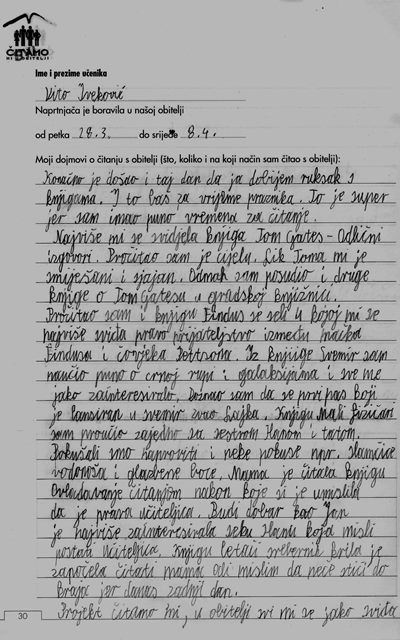 ČITAMO
MI U OBITELJI
Ime i prezime učenika
Vito Iveković
Naprtnjača je boravila u našoj obitelji
od petka 28.3. do srijede 8.4.
Moji dojmovi o čitanju s obitelji (što, koliko i na koji način sam čitao s obitelji):
Konačno je došao i taj dan da ja dobijem ruksak s
knjigama. I to baš za vrijeme praznika. To je super
jer sam imao puno vremena za čitanje.
Najviše mi se svidjela knjiga Tom Gates - Odlični
izgovori. Pročitao sam je cijelu. Lik Toma mi je
smiješan i sjajan. Odmah sam posudio i druge
knjige o Tom Gatesu u gradskoj knjižnici.
Pročitao sam i knjigu Findus se seli u kojoj mi se
najviše sviđa pravo prijateljstvo između mačka
Findusa i čovjeka Pettsona. Iz knjige Svemir sam
naučio puno o crnoj rupi i galaksijama i sve me
jako zainteresiralo. Doznao sam da se prvi pas koji
je lansiran u svemir zvao Lajka. Knjigu Mali fizičari
sam proučio zajedno sa sestrom Hanom i tatom.
Pokušali smo napraviti i neke pokuse npr. slamčice
vodoravna i glazbene boce. Mama je čitala knjigu
Ovladavanje čitanjem nakon koje si je umislila
da je prava učiteljica. Budi dobar kao Jan
je najviše zainteresirala seku Hanu koja misli
postati učiteljica. Knjigu Leteći srebrna krila je
započela čitati mama ali mislim da neće stići do
kraja jer danas zadnji dan.
Projekt Čitamo mi, u obitelji svi mi se jako sviđa
30